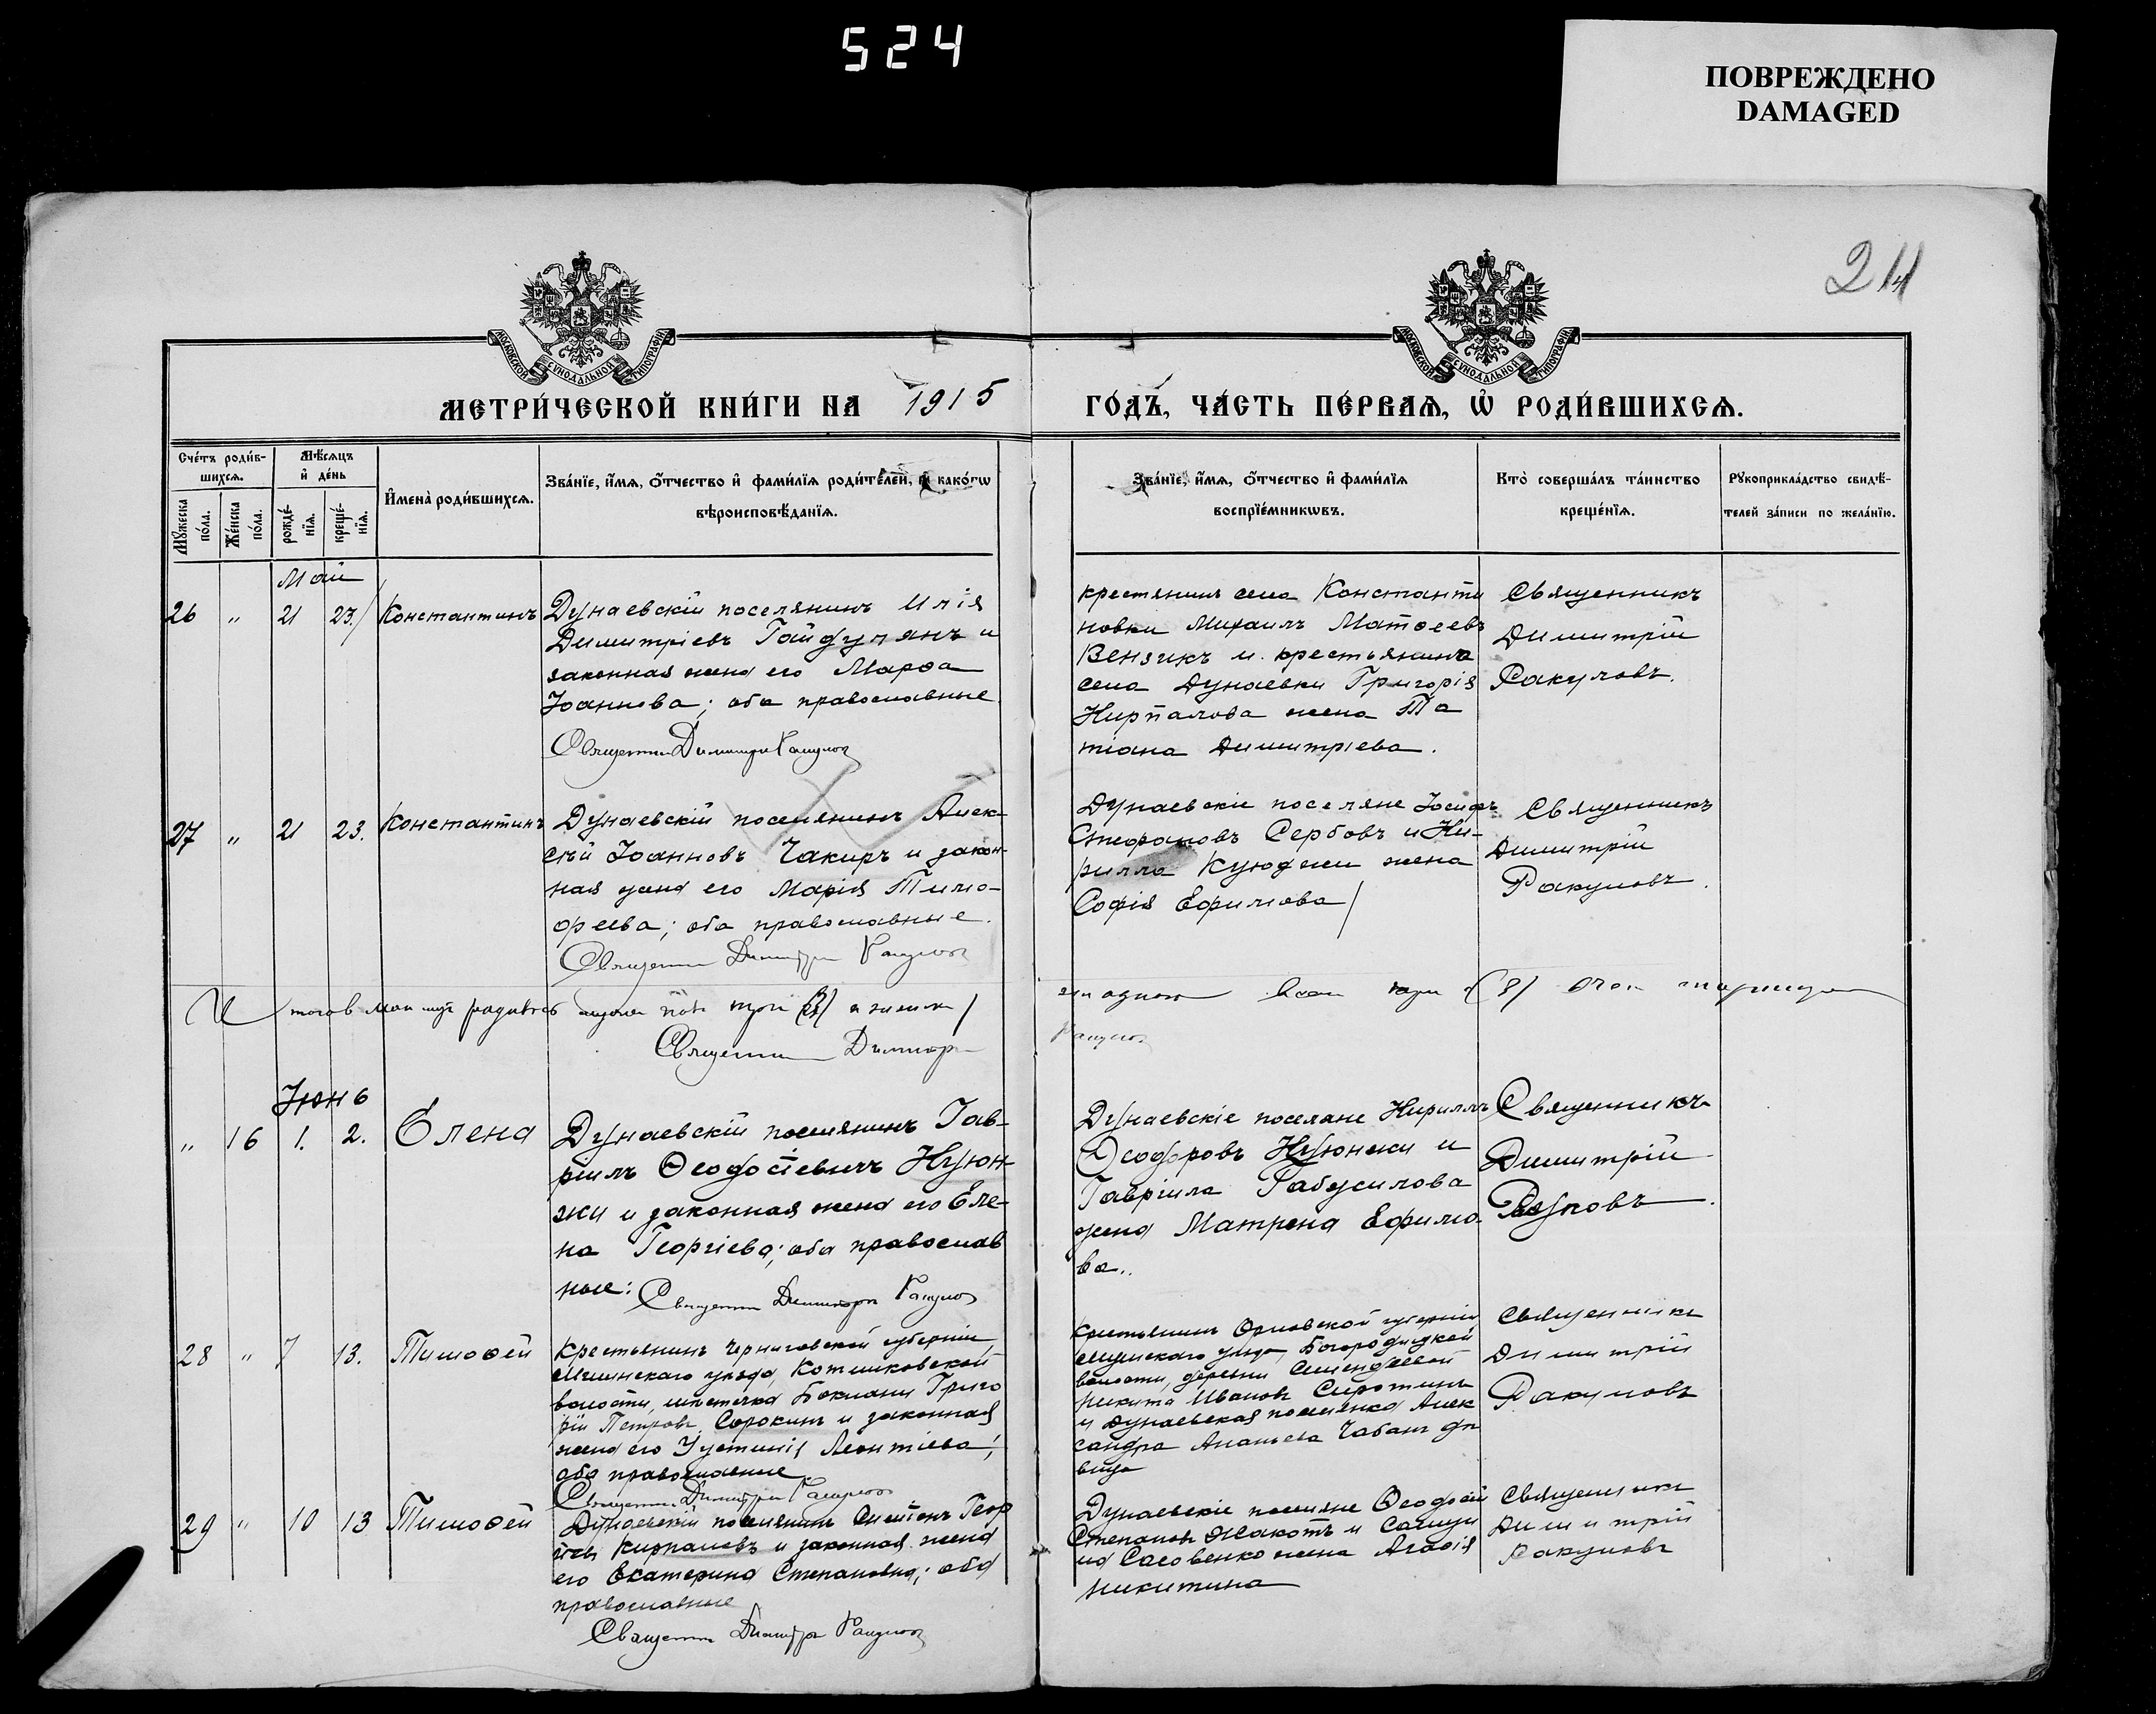 524
ПОВРЕЖДЕНО
DAMAGED
МОСКОВСКОЙ СѴНОДАЛЬНОЙ ТИПОГРАФІИ
МОСКОВСКОЙ СѴНОДАЛЬНОЙ ТИПОГРАФІИ
МЕТРИ́ЧЕСКОЙ КНИ́ГИ НА 1915
ГО́ДЪ, ЧА́СТЬ ПЕ́РВАѦ, Ѡ҆ РОДИ́ВШИХСѦ.
Сче́тъ роди́в-
шихсѧ.
Мѣ́сѧцъ
и҆ де́нь
Мꙋ́жеска
по́ла.
Же́нска
по́ла.
рожде́-
нїѧ.
креще́-
нїѧ.
И҆мена̀ роди́вшихсѧ.
Зва́нїе, и҆́мѧ, ѻ҆́тчество и҆ фами́лїѧ роди́телей, и҆ како́гѡ
вѣроисповѣ́данїѧ.
Зва́нїе, и҆́мѧ, ѻ҆́тчество и҆ фами́лїѧ
воспрїе́мникѡвъ.
Кто̀ соверша́лъ та́инство
креще́нїѧ.
Рꙋкоприкла́дство свидѣ́-
телей за́писи по жела́нїю.
Май
26 " 21 23. Константинъ
Дунаевскій поселянинъ Илія
Димитріевъ Гайдулянъ и
законная жена его Марѳа
Іоаннова; оба православные
Священникъ Димитрій Ракуловъ
крестянинъ села Константи
новки Михаилъ Матѳеевъ
Вензикъ и крестьянина
села Дунаевки Григорія
Кирпалова жена Та
тіана Димитріева.
Священникъ
Димитрій
Ракуловъ.
27 " 21 23. Константинъ
Дунаевскій поселянинъ Алек-
сѣй Іоанновъ Чакиръ и закон-
ная жена его Марія Тимо-
феева; оба православные.
Священникъ Димитрій Ракуловъ
Дунаевскіе поселяне Іосифъ
Стефановъ Сербовъ и Ки-
рилла Куюджи жена
Софія Ефимова
Священникъ
Димитрій
Ракуловъ.
Священникъ Димитрій
Ракуловъ
Іюнь
" 16 1. 2. Елена
Дунаевскій поселянинъ Гав-
ріилъ Ѳеодосіевичъ Куюн-
жи и законная жена его Еле-
на Георгіева; оба православ
ные: Священникъ Димитрій Ракуловъ
Дунаевскіе поселяне Кириллъ
Ѳеодоровъ Куюнжи и
Гавріила Рабусилова
жена Матрона Ефимо-
ва..
Священникъ
Димитрій
Ракуловъ.
28 " 7 13. Тимоѳей
Крестьянинъ Черниговской губерніи
Мглинскаго уѣзда, Котляковской
волости, мѣстечка Бакланы Григо
рій Петровъ Сорокинъ и законная
жена его Іустинія Леонтіева;
оба православные
Священникъ Димитрій Ракуловъ
Крестьянинъ Орловской губерніи
уѣзда, Богородицкой
волости, деревни
Никита Ивановъ Сиротинъ
и дунаевская поселянка Алек
сандра Ананьева Чабанъ дѣ
вица
Священникъ
Димитрій
Ракуловъ
29 " 10 13 Тимоѳей
Дунаевскій поселянинъ Симеонъ Геор
гіевъ Кирпалевъ и законная жена
его Екатерина Степановна; оба
православные
Священникъ Димитрій Ракуловъ
Дунаевскіе поселяне Ѳеодосій
Степановъ Жакотъ и Самуи
ла Сасовенко жена Агаѳія
Никитина
Священникъ
Димитрій
Ракуловъ